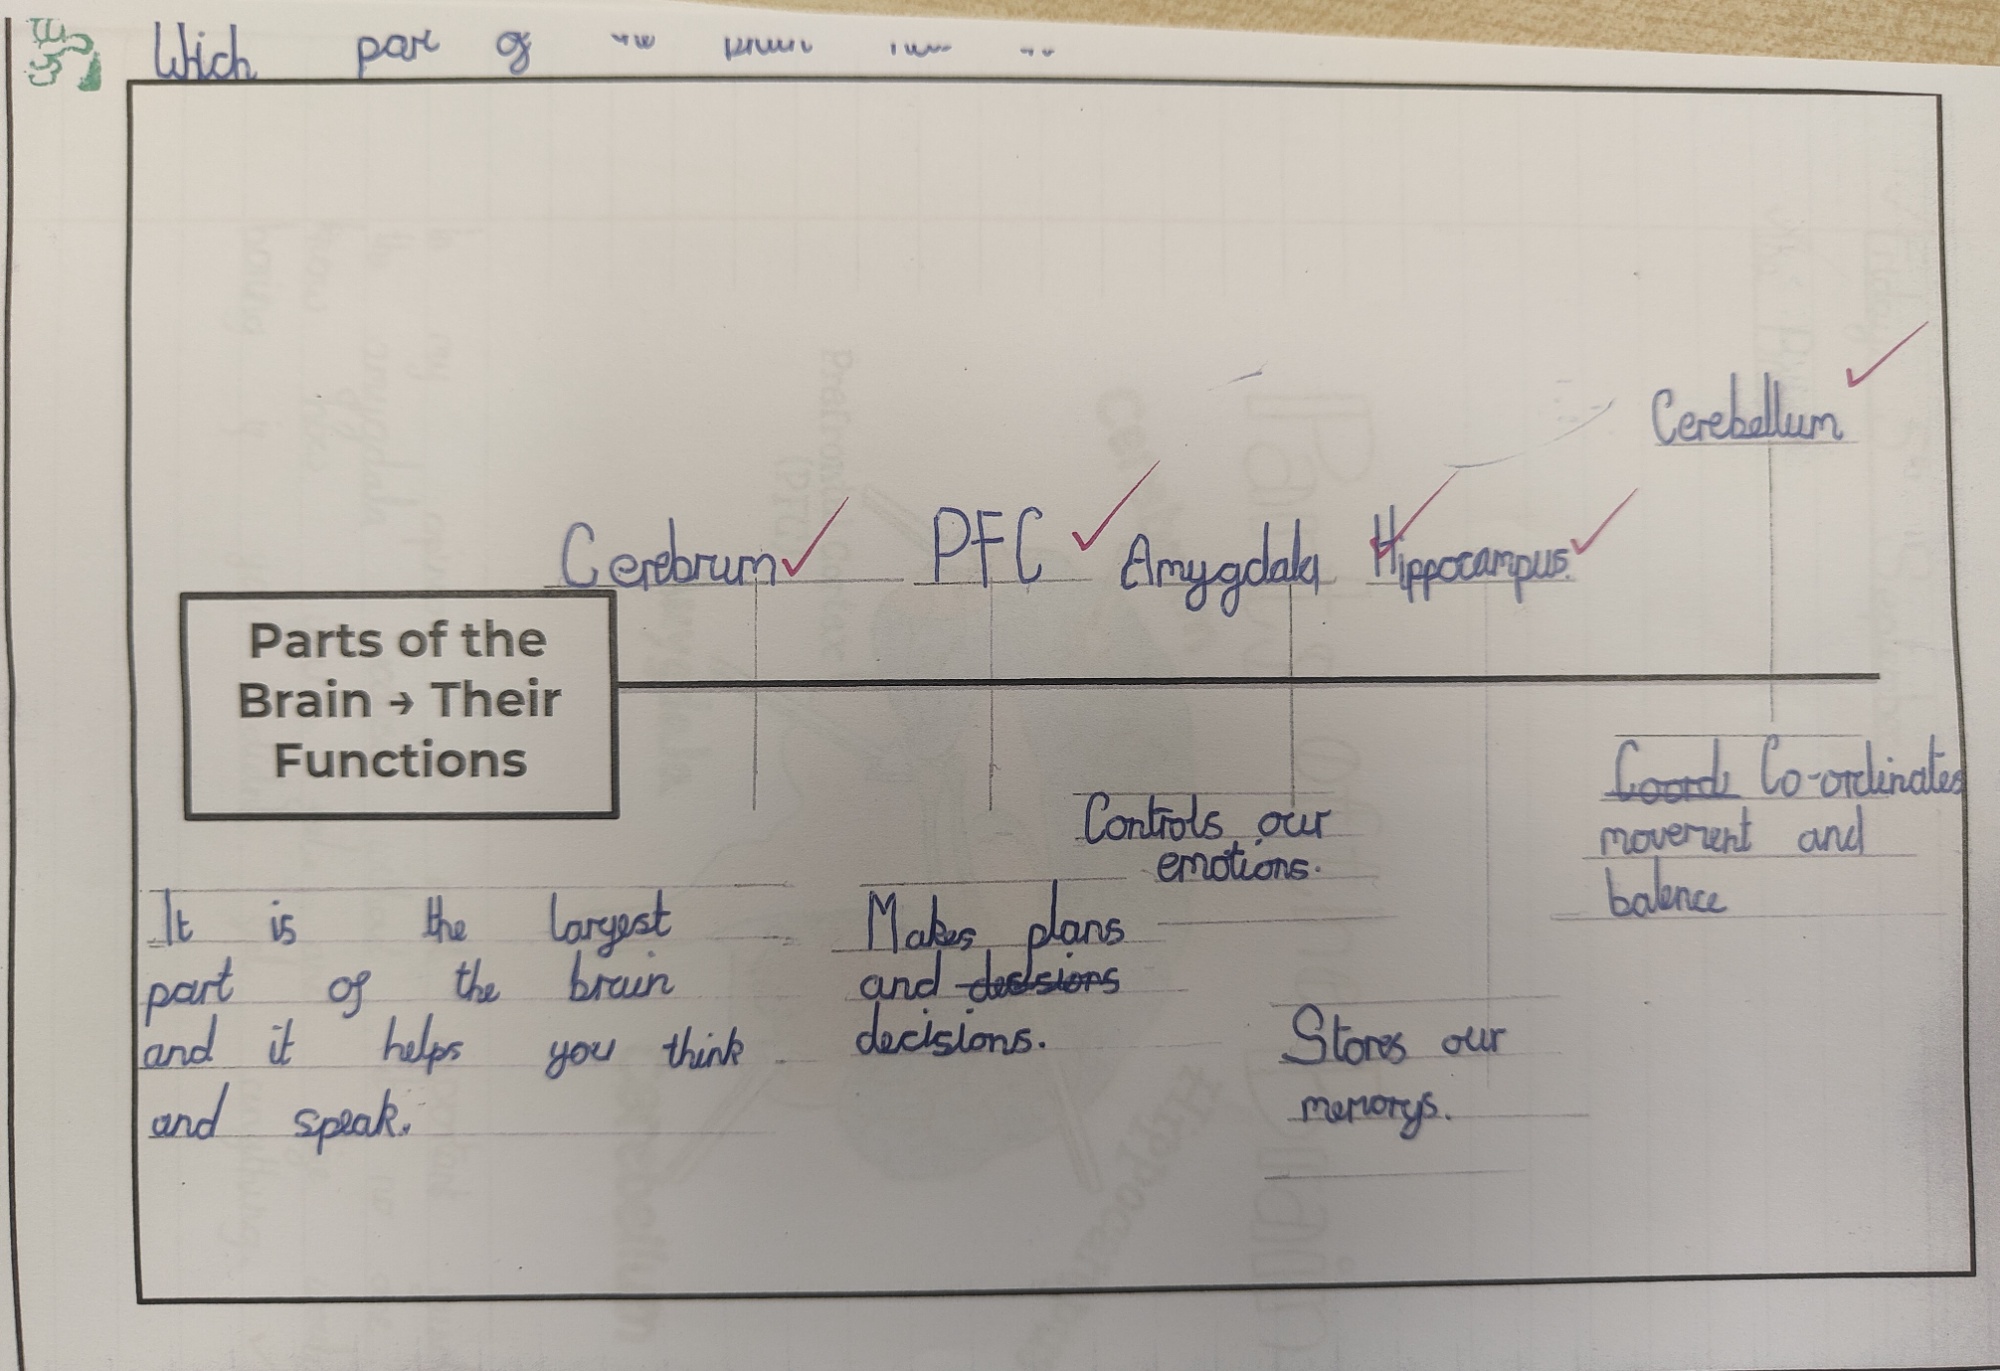 Wich par of
Cerebellum
Cerebrum PFC Amygdala Hippocampus.
Parts of the
Brain → Their
Functions
It is the largest
part of the brain
and it helps you think
and speak.
Makes plans
and decisions
decisions.
Controls our
emotions.
Stores our
memorys.
Coords Co-ordinates
movement and
balence